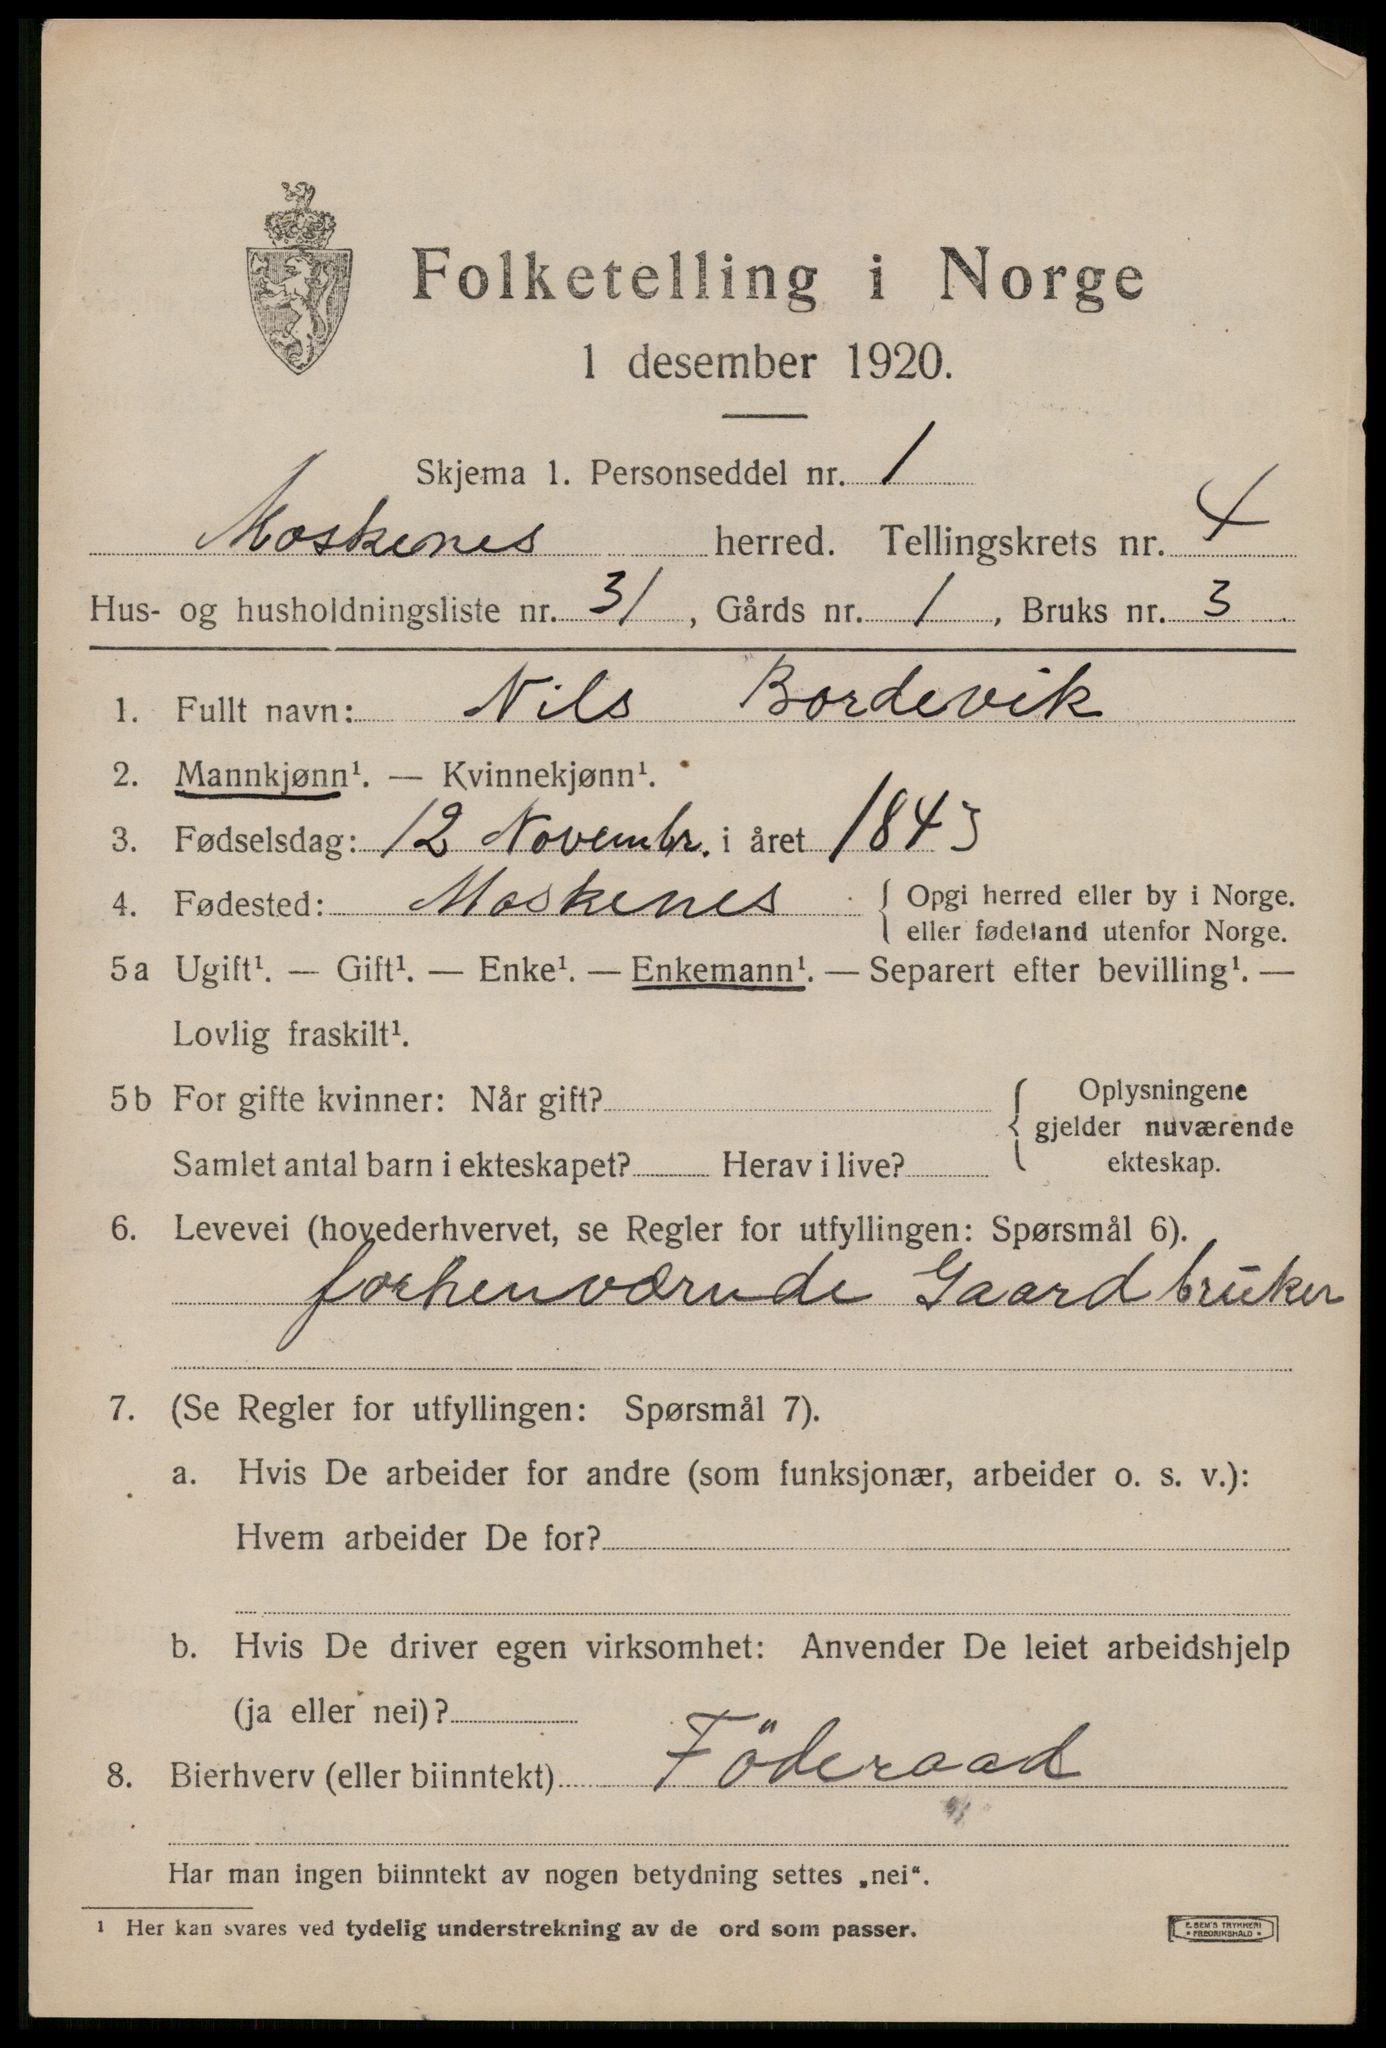 Folketelling i Norge
1 desember 1920.
Skjema 1. Personseddel nr. 1
Moskenes herred. Tellingskrets nr. 4
Hus- og husholdningsliste nr. 31, Gårds nr. 1, Bruks nr. 3
1. Fullt navn: Nils Bordevik
2. Mannkjønn¹. — Kvinnekjønn¹.
3. Fødselsdag: 12 Novembr. i året 1843
4. Fødested: Moskenes { Opgi herred eller by i Norge.
eller fødeland utenfor Norge.
5a Ugift¹. — Gift¹. — Enke¹. — Enkemann¹. — Separert efter bevilling¹. —
Lovlig fraskilt¹.
5b For gifte kvinner: Når gift? { Oplysningene
gjelder nuværende
Samlet antal barn i ekteskapet? Herav i live? ekteskap.
6. Levevei (hovederhvervet, se Regler for utfyllingen: Spørsmål 6).
forhenværnde Gaardbruker
7. (Se Regler for utfyllingen: Spørsmål 7).
a. Hvis De arbeider for andre (som funksjonær, arbeider o. s. v.):
Hvem arbeider De for?
b. Hvis De driver egen virksomhet: Anvender De leiet arbeidshjelp
(ja eller nei)?
8. Bierhverv (eller biinntekt) Föderaad
Har man ingen biinntekt av nogen betydning settes „nei“.
¹ Her kan svares ved tydelig understrekning av de ord som passer.
E. SEM'S TRYKKERI
* FREDRIKSHALD *